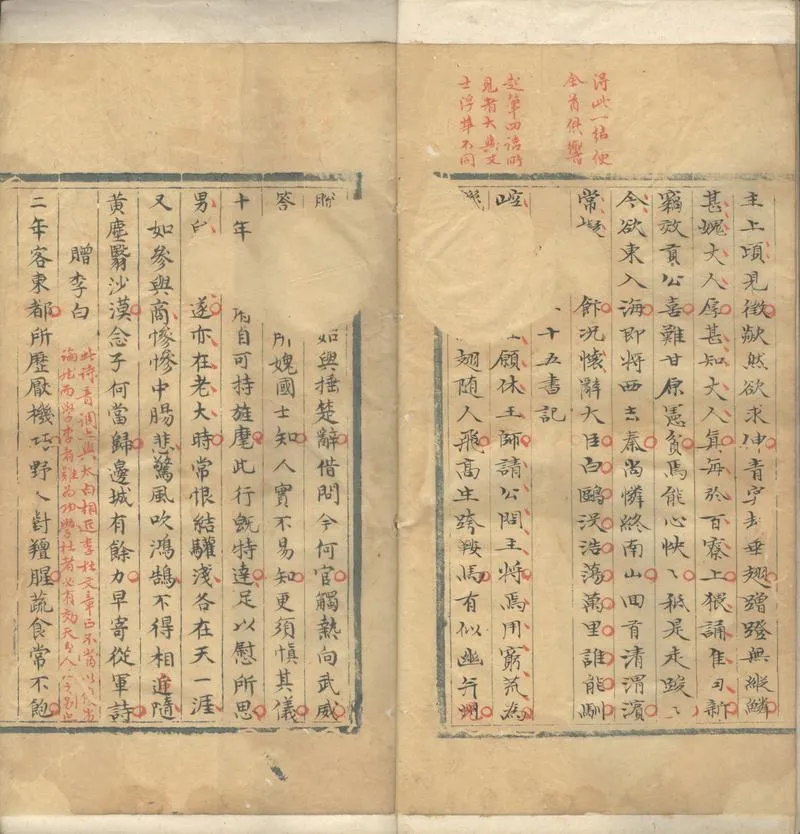 得此一結便
全首俱響
起筆四語所
見者大與文
士浮華不同
主上頃見徵歘然欲求伸青冥却垂翅蹭蹬無縱鱗
甚媿大人厚甚知大人真每於百寮上猥誦佳句新
竊效貢公喜難甘原憲貧焉能心怏〻秪是走踆〻
今欲東入海即將西去秦尚憐終南山回首清渭濱
常擬飰況懷辭大臣白鷗沒浩蕩萬里誰能馴
十五書記
崆願休王師請公問主將焉用窮荒為
翅隨人飛高生跨鞍馬有似幽并州
脫如與捶楚辭借問今何官觸熱向武威
答所媿國士知人實不易知更須慎其儀
十年自可持旌麾此行既特達足以慰所思
男遂亦在老大時常恨結驩淺各在天一涯
又如參與商慘慘中腸悲驚風吹鴻鵠不得相追隨
黃塵翳沙漠念子何當歸邊城有餘力早寄從軍詩
贈李白
此詩音調亦與太白相近李杜文章正不
二年客東都所歷厭機巧野人對羶腥蔬食常不飽